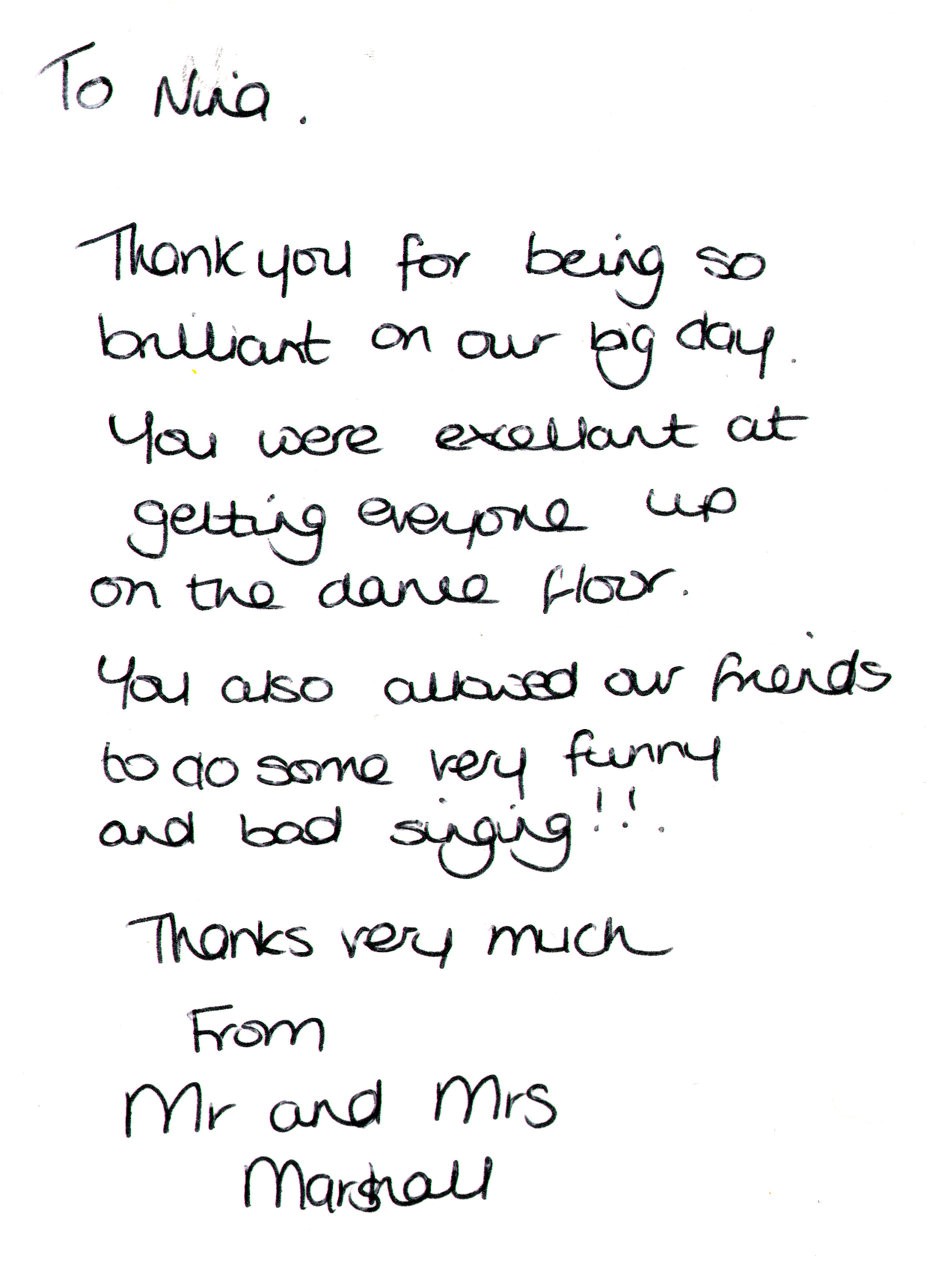 To Nina.
Thank you for being so
brilliant on our big day.
You were excellant at
getting everyone up
on the dance floor.
You also allowed our friends
to do some very funny
and bad singing!!.
Thanks very much
From
Mr and Mrs
Marshall